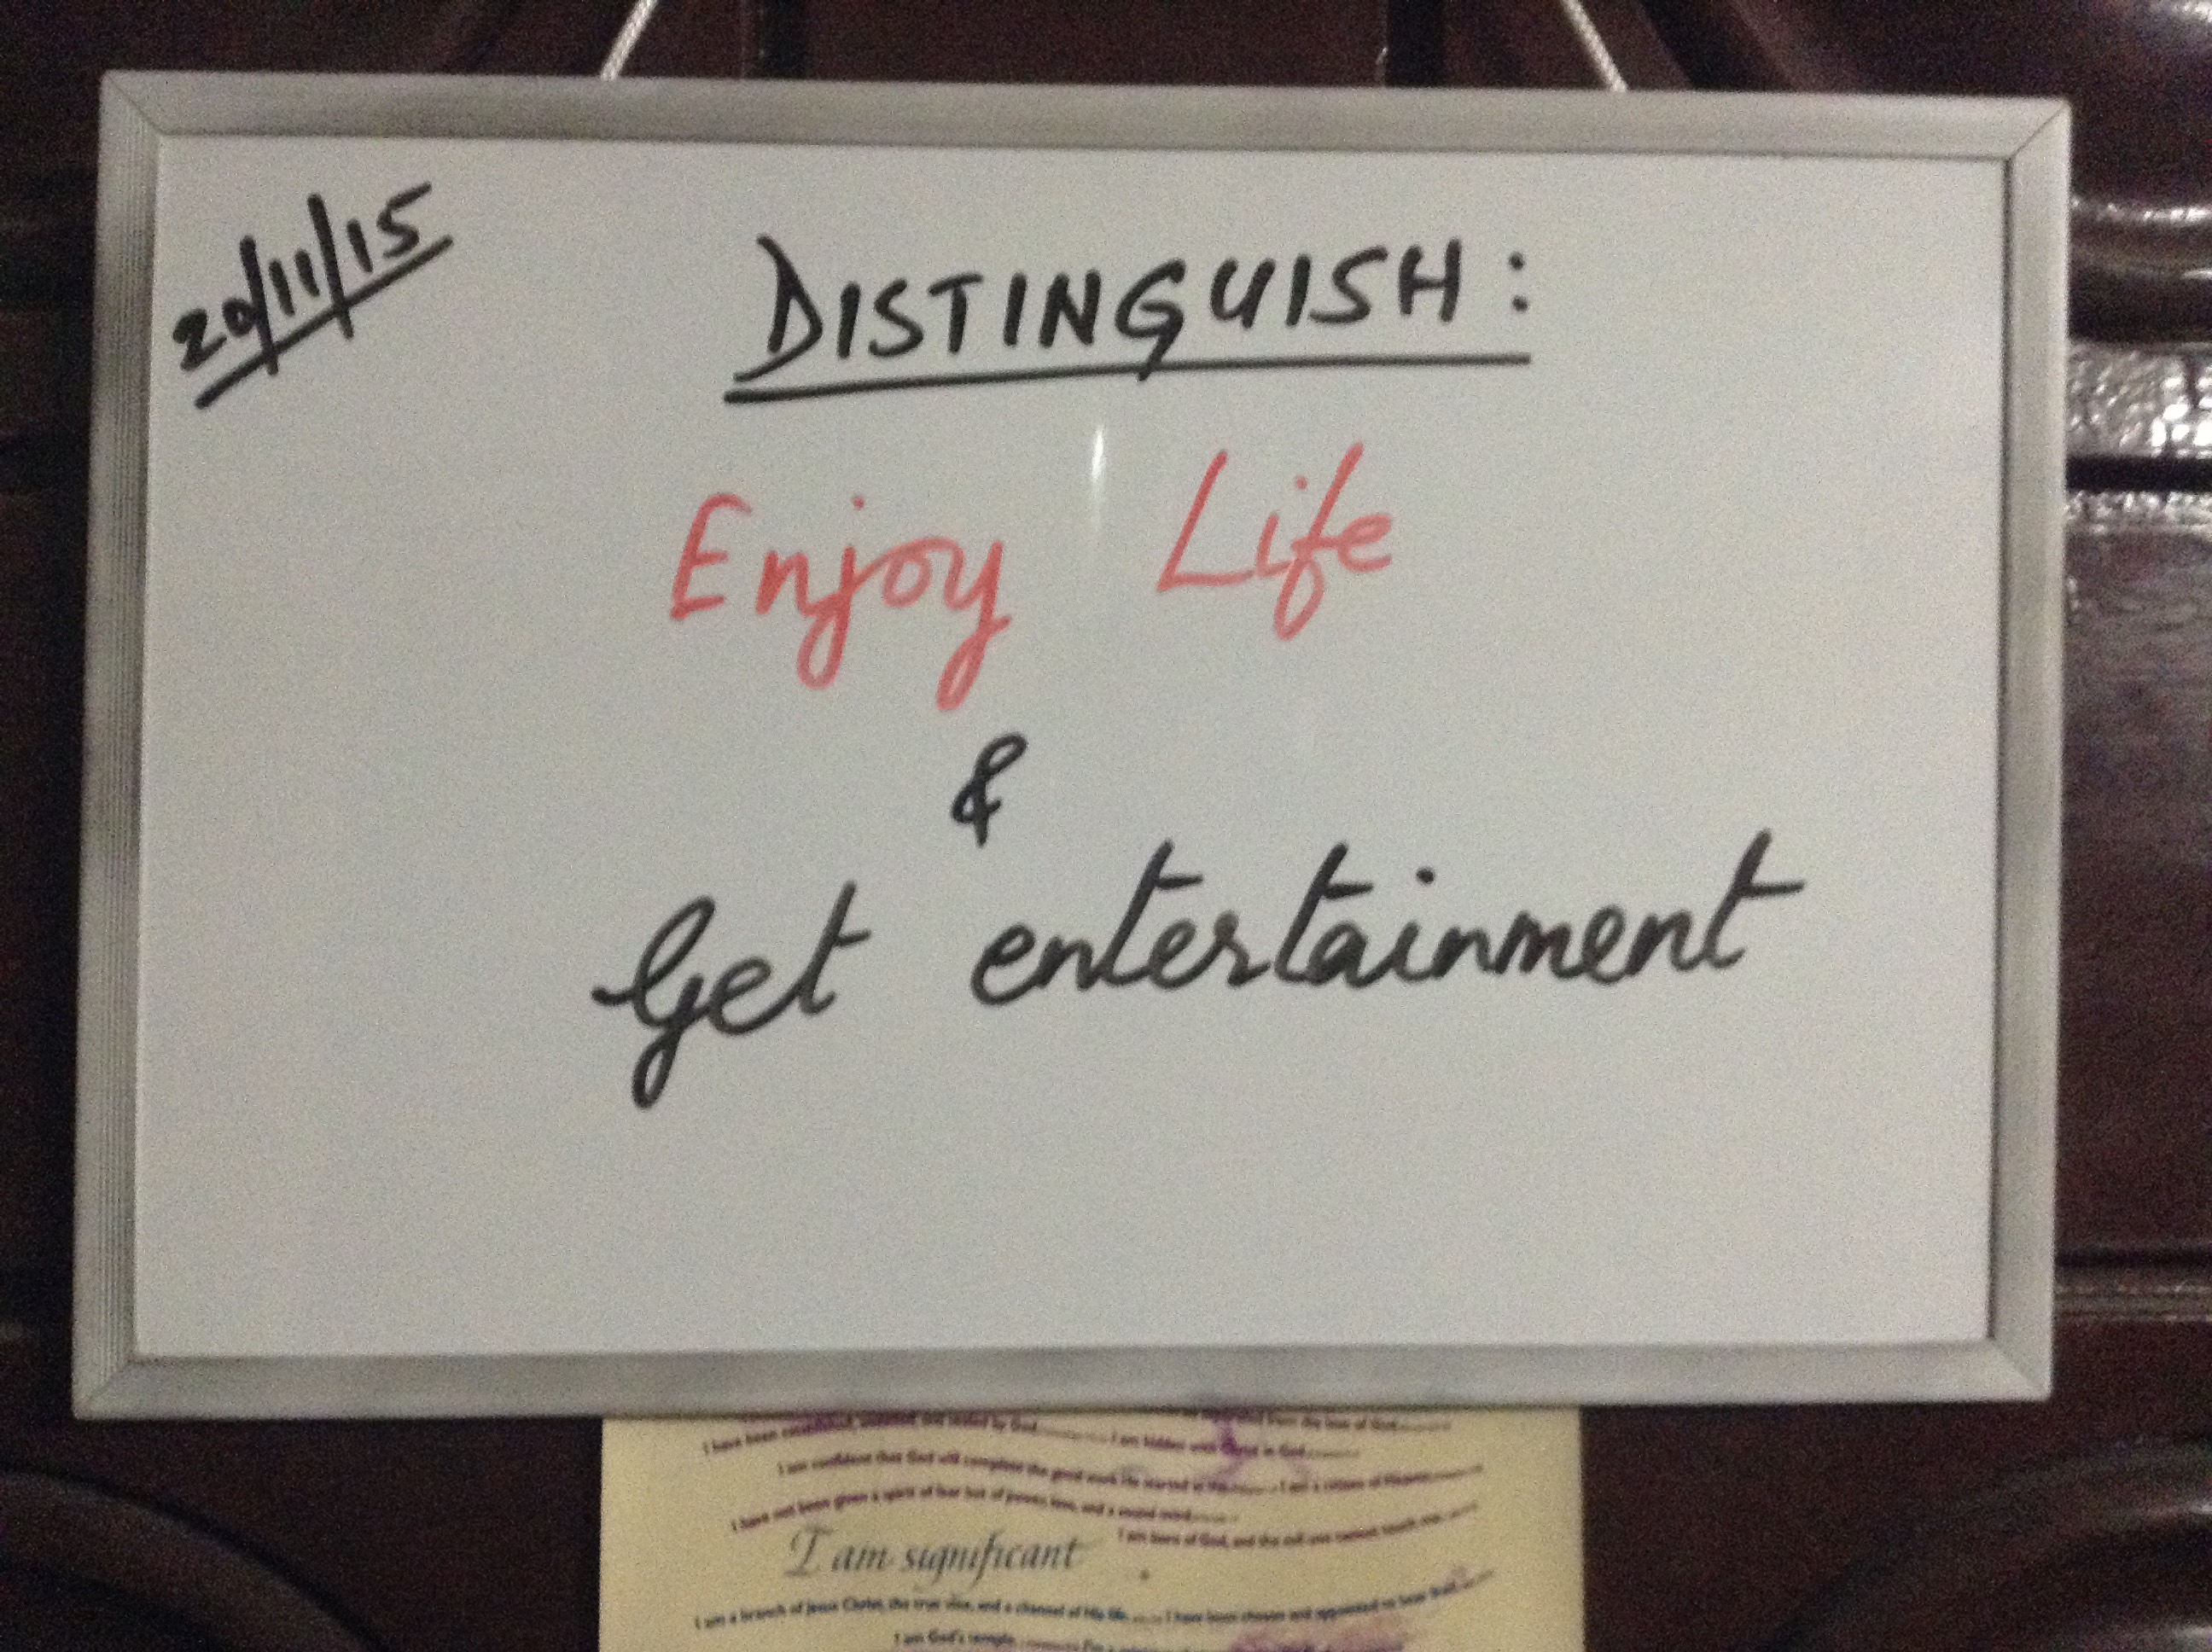 20/11/15
DISTINGUISH:
Enjoy Life
&
Get entertainment
I have been established, anointed and sealed by God I am hidden with Christ in God
I am confident that God will complete the good work He started in me I am a citizen of Heaven
I have not been given a spirit of fear but of power, love, and a sound mind
I am born of God, and the evil one cannot touch me
I am significant
I am a branch of Jesus Christ, the true vine, and a channel of His life I have been chosen and appointed to bear fruit
I am God's temple